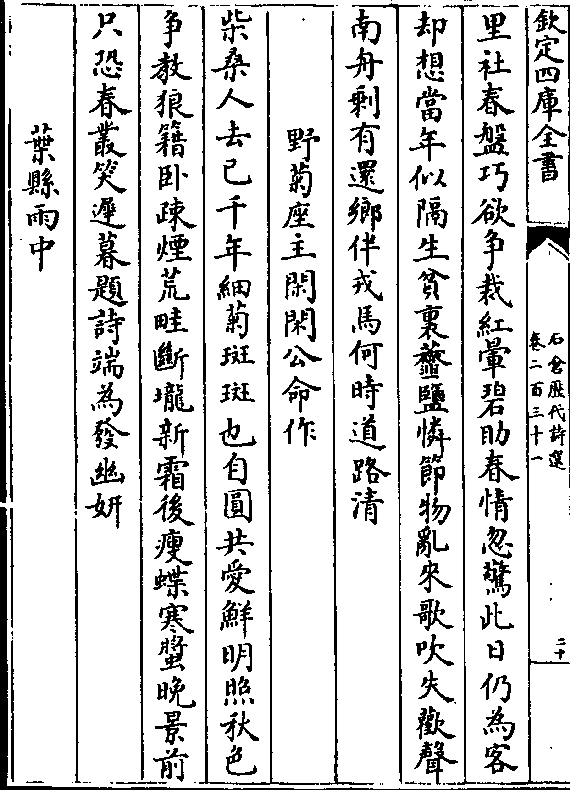 欽定四庫全書
石倉歷代詩選
卷二百三十一
二十
里社春盤巧欲争裁紅暈碧助春情忽驚此日仍為客
却想當年似隔生貧裏虀鹽憐節物亂來歌吹失歡聲
南舟剩有還鄉伴戎馬何時道路清
野菊座主閑閑公命作
柴桑人去已千年細菊斑斑也自圓共愛鮮明照秋色
争教狼籍卧疎煙荒畦斷壠新霜後瘦蝶寒螿晚景前
只恐春叢笑遲暮題詩端為發幽妍
葉縣雨中